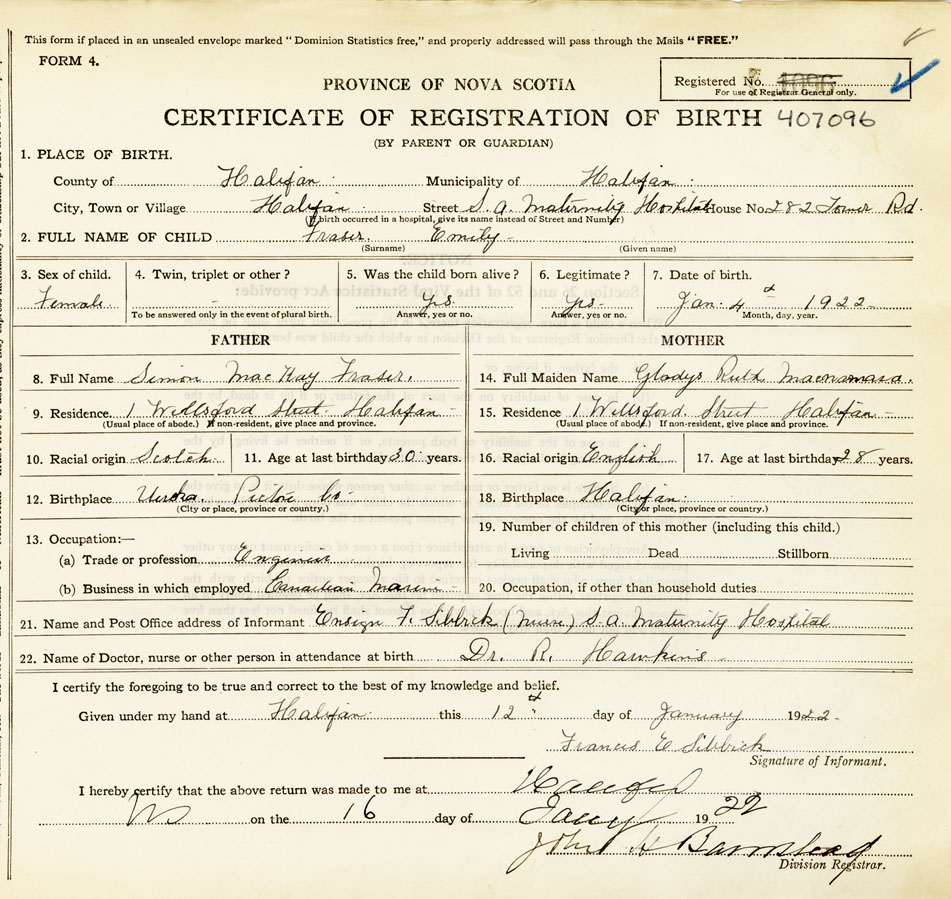 This form if placed in an unsealed envelope marked "Dominion Statistics free," and properly addressed will pass through the Mails "FREE."
FORM 4.
Registered No. 1096
For use of Registrar General only.
PROVINCE OF NOVA SCOTIA
CERTIFICATE OF REGISTRATION OF BIRTH 407096
(BY PARENT OR GUARDIAN)
1. PLACE OF BIRTH.
County of Halifax Municipality of Halifax
City, Town or Village Halifax Street S. A. Maternity Hospital House No. 282 Tower Rd.
(If birth occurred in a hospital, give its name instead of Street and Number)
2. FULL NAME OF CHILD Fraser. Emily
(Surname) (Given name)
3. Sex of child. 4. Twin, triplet or other? 5. Was the child born alive? 6. Legitimate? 7. Date of birth.
Female - yes. yes. Jan. 4th 1922
To be answered only in the event of plural birth. Answer, yes or no. Answer, yes or no. Month, day, year.
FATHER MOTHER
8. Full Name Simon MacKay Fraser. 14. Full Maiden Name Gladys Ruth Macnamara.
9. Residence. 1 Wellsford Street Halifax 15. Residence 1 Wellsford Street Halifax
(Usual place of abode.) If non-resident, give place and province. (Usual place of abode.) If non-resident, give place and province.
10. Racial origin Scotch 11. Age at last birthday 30 years. 16. Racial origin English 17. Age at last birthday 28 years.
12. Birthplace Pictou Co. 18. Birthplace Halifax
(City or place, province or country.) (City or place, province or country.)
13. Occupation:— 19. Number of children of this mother (including this child.)
(a) Trade or profession Engineer Living Dead Stillborn
(b) Business in which employed Canadian Marine 20. Occupation, if other than household duties
21. Name and Post Office address of Informant Ensign F. Sibbick (Nurse) S. A. Maternity Hospital
22. Name of Doctor, nurse or other person in attendance at birth Dr. R. Hawkins
I certify the foregoing to be true and correct to the best of my knowledge and belief.
Given under my hand at Halifax this 12th day of January 1922
Francis E Sibbick
Signature of Informant.
I hereby certify that the above return was made to me at Halifax
NS on the 16 day of Jany 1922
John H Barnstead
Division Registrar.